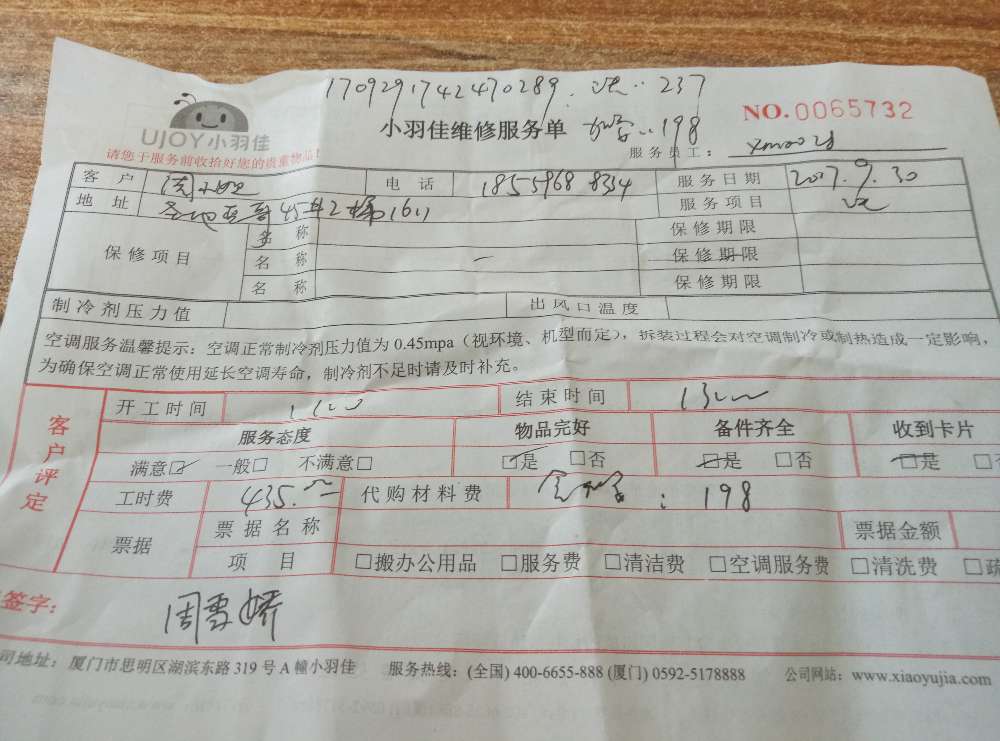 1709291742470289. 237
NO.0065732
UJOY小羽佳
小羽佳维修服务单 198
请您于服务前收拾好您的贵重物品!
服务员工:
客户 周 电话 服务日期 2017.9.30
地址 45#2梯1611 服务项目
保修项目 名称 保修期限
名称 — 保修期限
名称 保修期限
制冷剂压力值 出风口温度
空调服务温馨提示:空调正常制冷剂压力值为 0.45mpa(视环境、机型而定),拆装过程会对空调制冷或制热造成一定影响,
为确保空调正常使用延长空调寿命,制冷剂不足时请及时补充。
客户评定
开工时间 结束时间 1300
服务态度 物品完好 备件齐全 收到卡片
满意☑ 一般□ 不满意□ ☑是 □否 ☑是 □否 ☑是 □
工时费 435. 代购材料费 : 198
票据 票据名称 票据金额
项目 □搬办公用品 □服务费 □清洁费 □空调服务费 □清洗费 □疏
签字: 周雪娇
司地址:厦门市思明区湖滨东路 319 号 A 幢小羽佳 服务热线:(全国) 400-6655-888 (厦门) 0592-5178888 公司网站:www.xiaoyujia.com